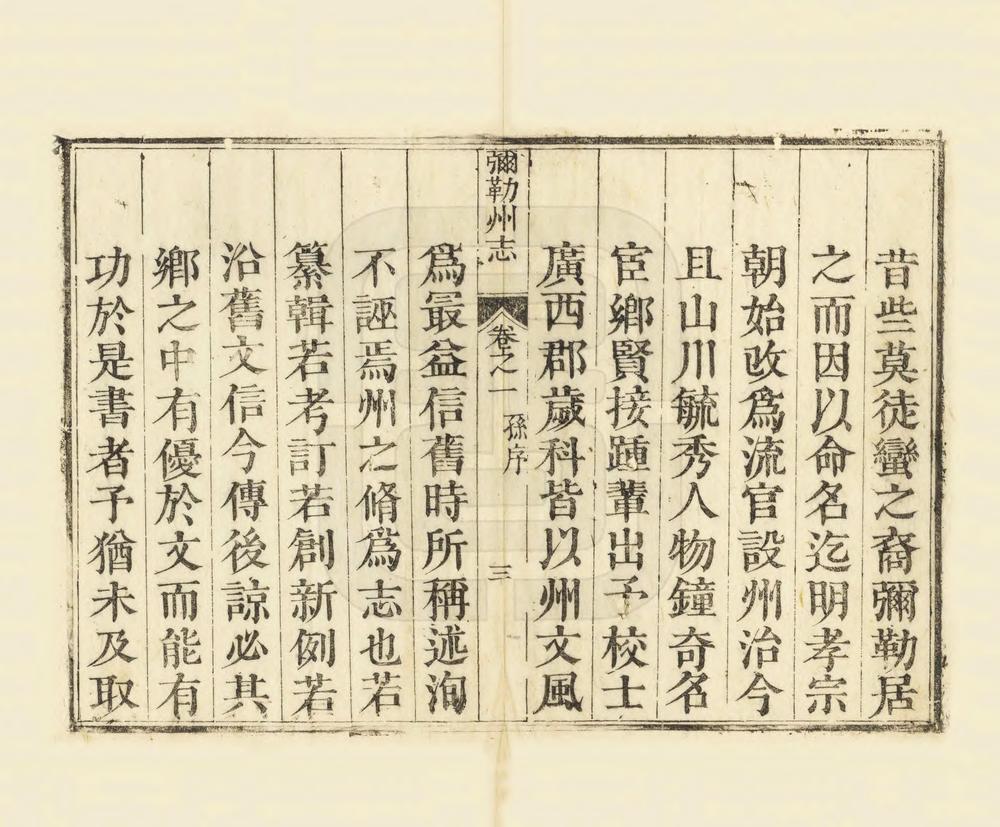 昔些莫徒蠻之裔彌勒居
之而因以命名迄明孝宗
朝始改為流官設州治今
且山川毓秀人物鐘奇名
宦鄉賢接踵輩出予校士
廣西郡歲科皆以州文風
彌勒州志
卷之一
孫序
三
爲最益信舊時所稱述洵
不誣焉州之脩爲志也若
纂輯若考訂若創新例若
沿舊文信今傳後諒必其
鄉之中有優於文而能有
功於是書者予猶未及取